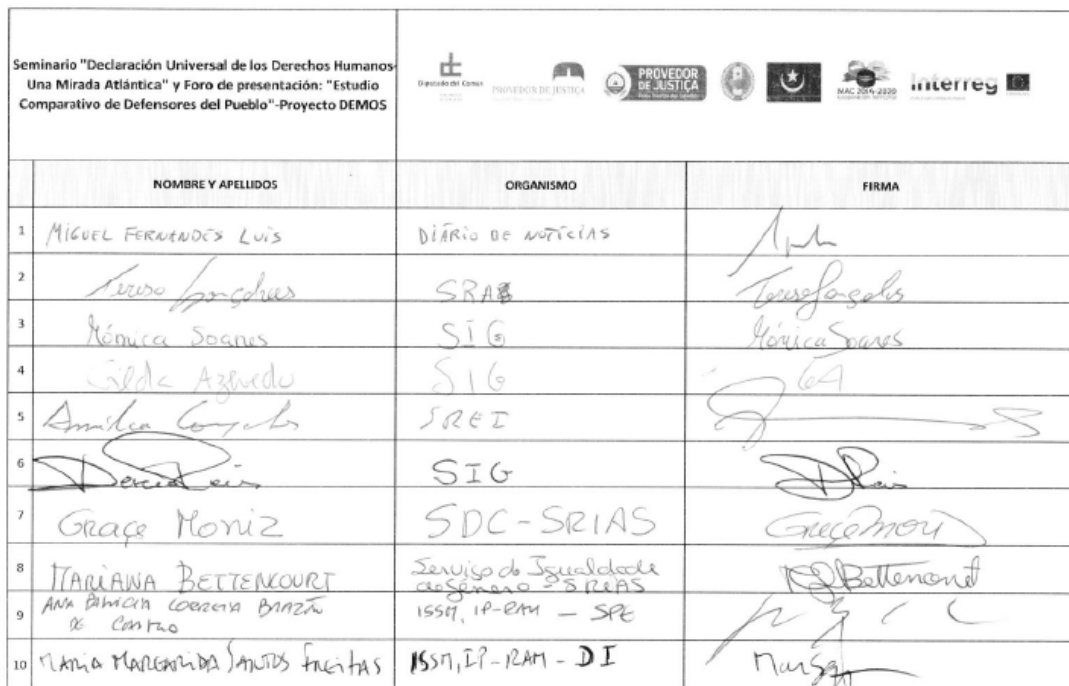 Seminario "Declaración Universal de los Derechos Humanos-
Una Mirada Atlántica" y Foro de presentación: "Estudio
Comparativo de Defensores del Pueblo"-Proyecto DEMOS
Diputado del Común
PROVEDOR DE JUSTIÇA
PROVEDOR
DE JUSTIÇA
MAC 2014-2020
Interreg
NOMBRE Y APELLIDOS ORGANISMO FIRMA
1 MIGUEL FERNANDES LUÍS DIÁRIO DE NOTÍCIAS
2 Teresa Gonçalves SRA Teresa Gonçalves
3 Mónica Soares SIG Mónica Soares
4 Gilda Azevedo SIG GA
5 Amílcar Gonçalves SREI
6 SIG
7 Graça Moniz SDC-SRIAS Graça Moniz
8 MARIANA BETTENCOURT Serviço de Igualdade
de Género - SRIAS Bettencourt
9 ANA PATRÍCIA CORREIA BRAZÃO
DE CASTRO ISSM, IP-RAM - SPE
10 MARIA MARGARIDA SANTOS FREITAS ISSM, IP-RAM - DI